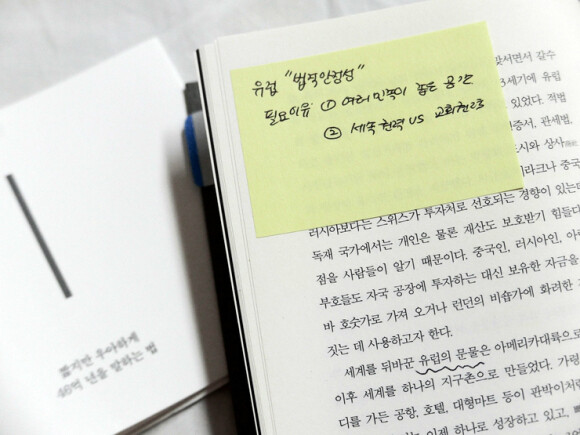 짧지만 우아하게
46억 년을 말하는 법
유럽 "법적안정성"
필요이유 ① 여러 민족이 좁은 공간
② 세속 권력 VS 교회권력
맞서면서 갈수
세기에 유럽
있었다. 적법
증서, 관세법,
도시와 상사
이라크나 중국
러시아보다는 스위스가 투자처로 선호되는 경향이 있는데
독재 국가에서는 개인은 물론 재산도 보호받기 힘들다
점을 사람들이 알기 때문이다. 중국인, 러시아인, 아
부호들도 자국 공장에 투자하는 대신 보유한 자금을
바 호숫가로 가져 오거나 런던의 비숍가에 화려한
짓는 데 사용하고자 한다.
세계를 뒤바꾼 유럽의 문물은 아메리카대륙으로
이후 세계를 하나의 지구촌으로 만들었다. 가령
디를 가든 공항, 호텔, 대형마트 등이 판박이처럼
는 이제 하나로 성장하고 있고,